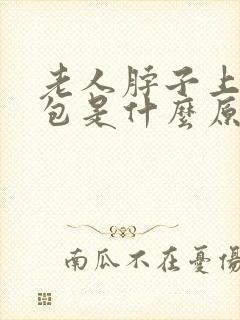 老人脖子上
包是什麼原
南瓜不在憂傷